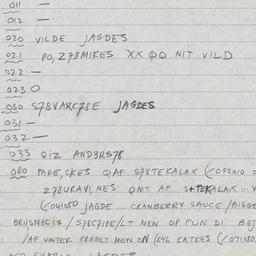 011 —
012 —
020 VILDE JAGDES
021 PO, Z78MIKES XX QQ NIT VILD
022 —
023 O
030 S78VARC78E JAGDES
031 —
032 —
033 QIZ AND3RS78
040 PARE, CKES QAF S978TEKALAX (COP2010 =
Z78URAVI, NES QMT AF S+TEKALAX...
(COU1050 JAGDE... CRANBERRY SAUCE / BIGGE
BRUSNICIS / S78C71PE/LT MEN OP PUN DI BEJ
/AF VINTER PREOLT MEN ON (046 KATKES (
JAGDES